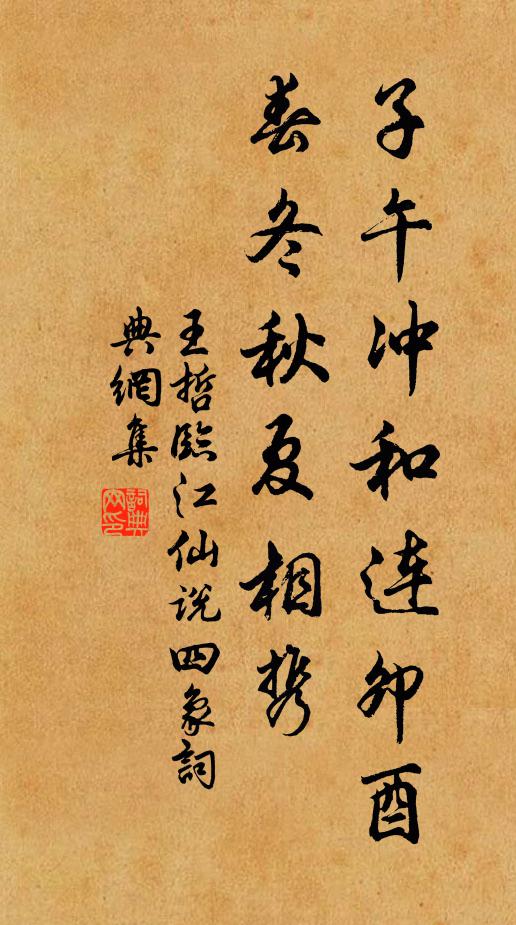 子午冲和连卯酉
春冬秋夏相携
王哲臨江仙说四象詞
典網集
詞典网印